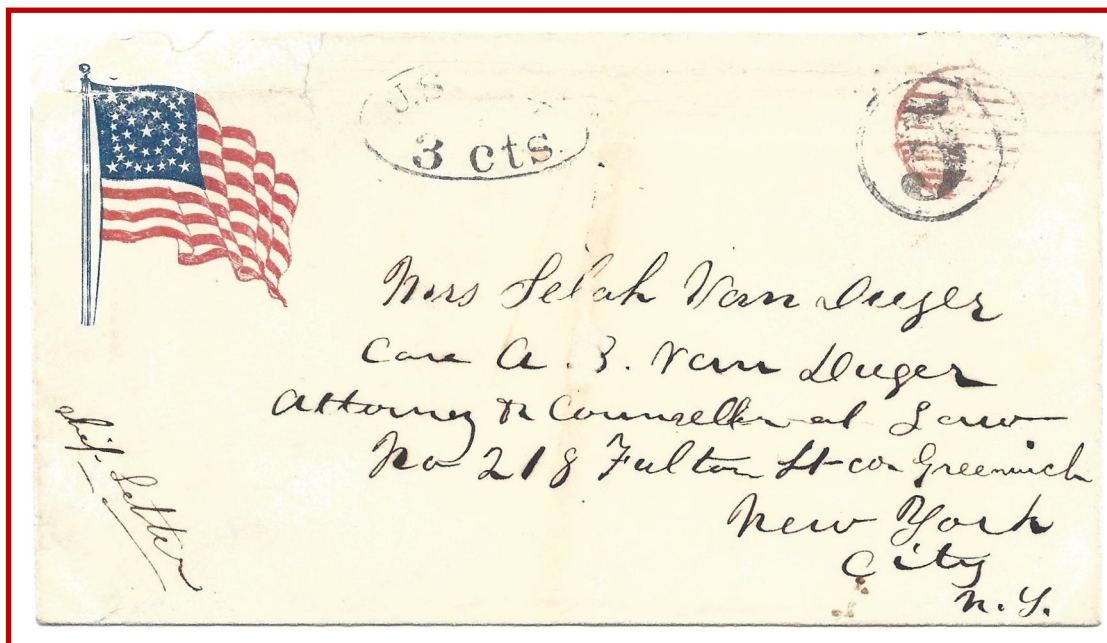 U.S
3 cts.
Mrs Selah Van Duzer
Care A. B. Van Duzer
Attorney & Counseller at Law
No 218 Fulton St cor Greenwich
New York
City
N.Y.
Ship Letter